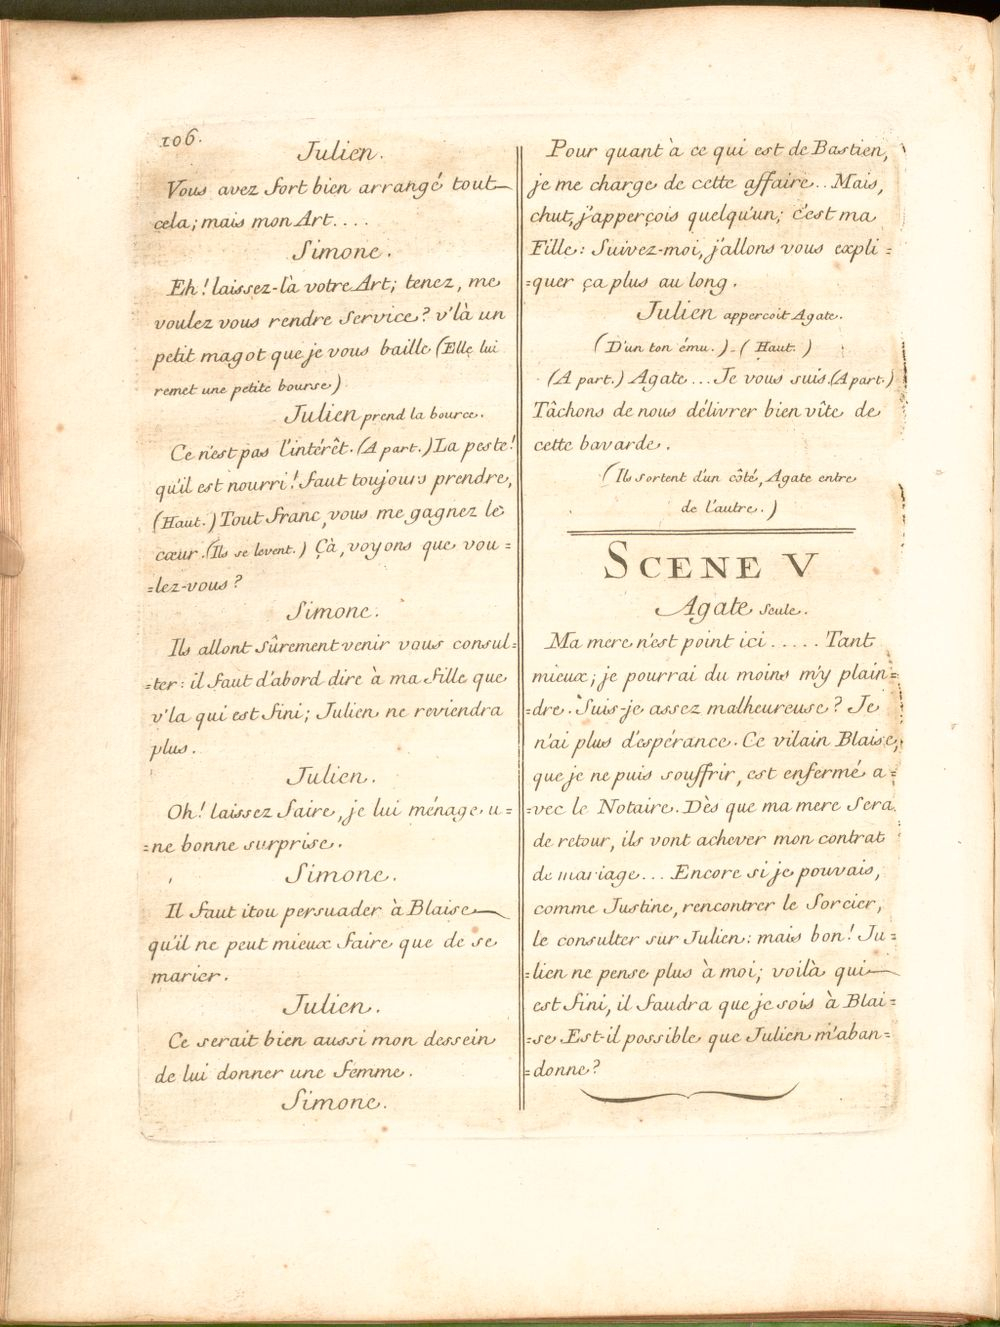 106.
Julien.
Vous avez fort bien arrangé tout
cela; mais mon Art....
Simone.
Eh! laissez-là votre Art; tenez, me
voulez vous rendre service? v'là un
petit magot que je vous baille (Elle lui
remet une petite bourse)
Julien prend la bource.
Ce n'est pas l'intérêt. (A part.) La peste!
qu'il est nourri! faut toujours prendre,
(Haut.) Tout franc, vous me gagnez le
cœur. (Ils se levent.) Çà, voyons que vou=
=lez-vous?
Simone.
Ils allont sûrement venir vous consul=
=ter: il faut d'abord dire à ma fille que
v'la qui est fini; Julien ne reviendra
plus.
Julien.
Oh! laissez faire, je lui ménage u=
=ne bonne surprise.
Simone.
Il faut itou persuader à Blaise
qu'il ne peut mieux faire que de se
marier.
Julien.
Ce serait bien aussi mon dessein
de lui donner une femme.
Simone.
Pour quant à ce qui est de Bastien,
je me charge de cette affaire.. Mais,
chut, j'apperçois quelqu'un; c'est ma
Fille: Suivez-moi, j'allons vous expli=
=quer ça plus au long.
Julien appercoit Agate.
(D'un ton ému.) (Haut.)
(A part.) Agate... Je vous suis. (A part.)
Tâchons de nous délivrer bien vîte de
cette bavarde.
(Ils sortent d'un côté, Agate entre
de l'autre.)
SCENE V
Agate seule.
Ma mere n'est point ici..... Tant
mieux; je pourrai du moins m'y plain=
=dre. Suis-je assez malheureuse? Je
n'ai plus d'espérance. Ce vilain Blaise,
que je ne puis souffrir, est enfermé a=
=vec le Notaire. Dès que ma mere sera
de retour, ils vont achever mon contrat
de mariage... Encore si je pouvais,
comme Justine, rencontrer le Sorcier,
le consulter sur Julien: mais bon! Ju=
=lien ne pense plus à moi; voilà qui
est fini, il faudra que je sois à Blai=
=se Est-il possible que Julien m'aban=
=donne?